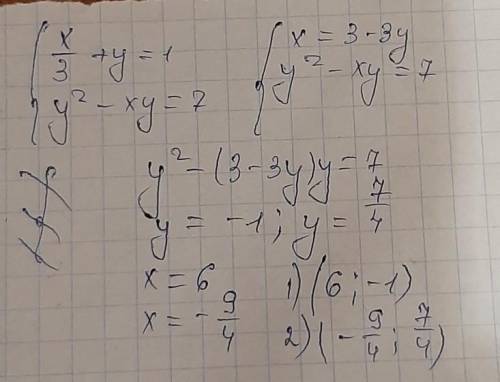 { x/3 + y = 1
y² - xy = 7
{ x = 3 - 3y
y² - xy = 7
y² - (3 - 3y)y = 7
y = -1; y = 7/4
x = 6
x = -9/4
1) (6; -1)
2) (-9/4; 7/4)